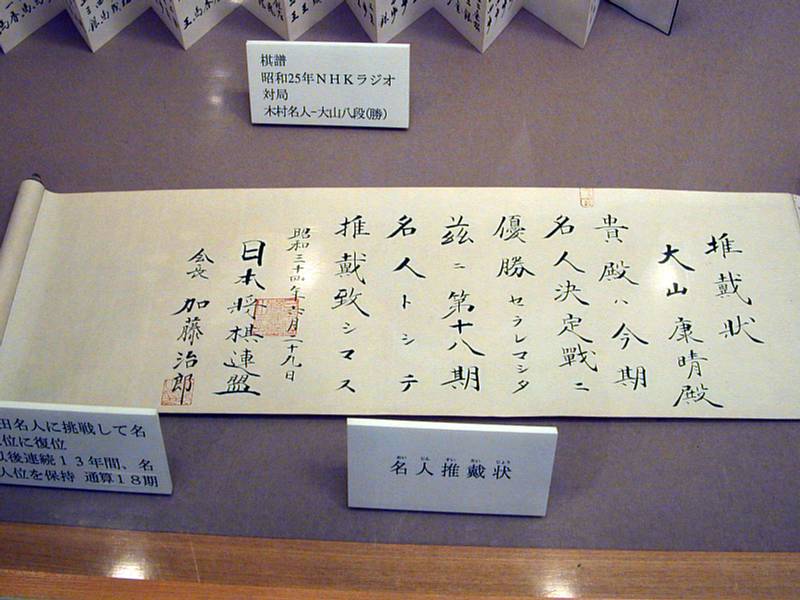 棋譜
昭和25年NHKラジオ
対局
木村名人−大山八段(勝)
推戴状
大山康晴殿
貴殿ハ今期
名人決定戰ニ
優勝セラレマシタ
茲ニ第十八期
名人トシテ
推戴致シマス
昭和三十四年六月二十九日
日本将棋連盟
会長 加藤治郎
田名人に挑戦して名
位に復位
以後連続13年間、名
人位を保持 通算18期
めい じん すい たい じょう
名人推戴状